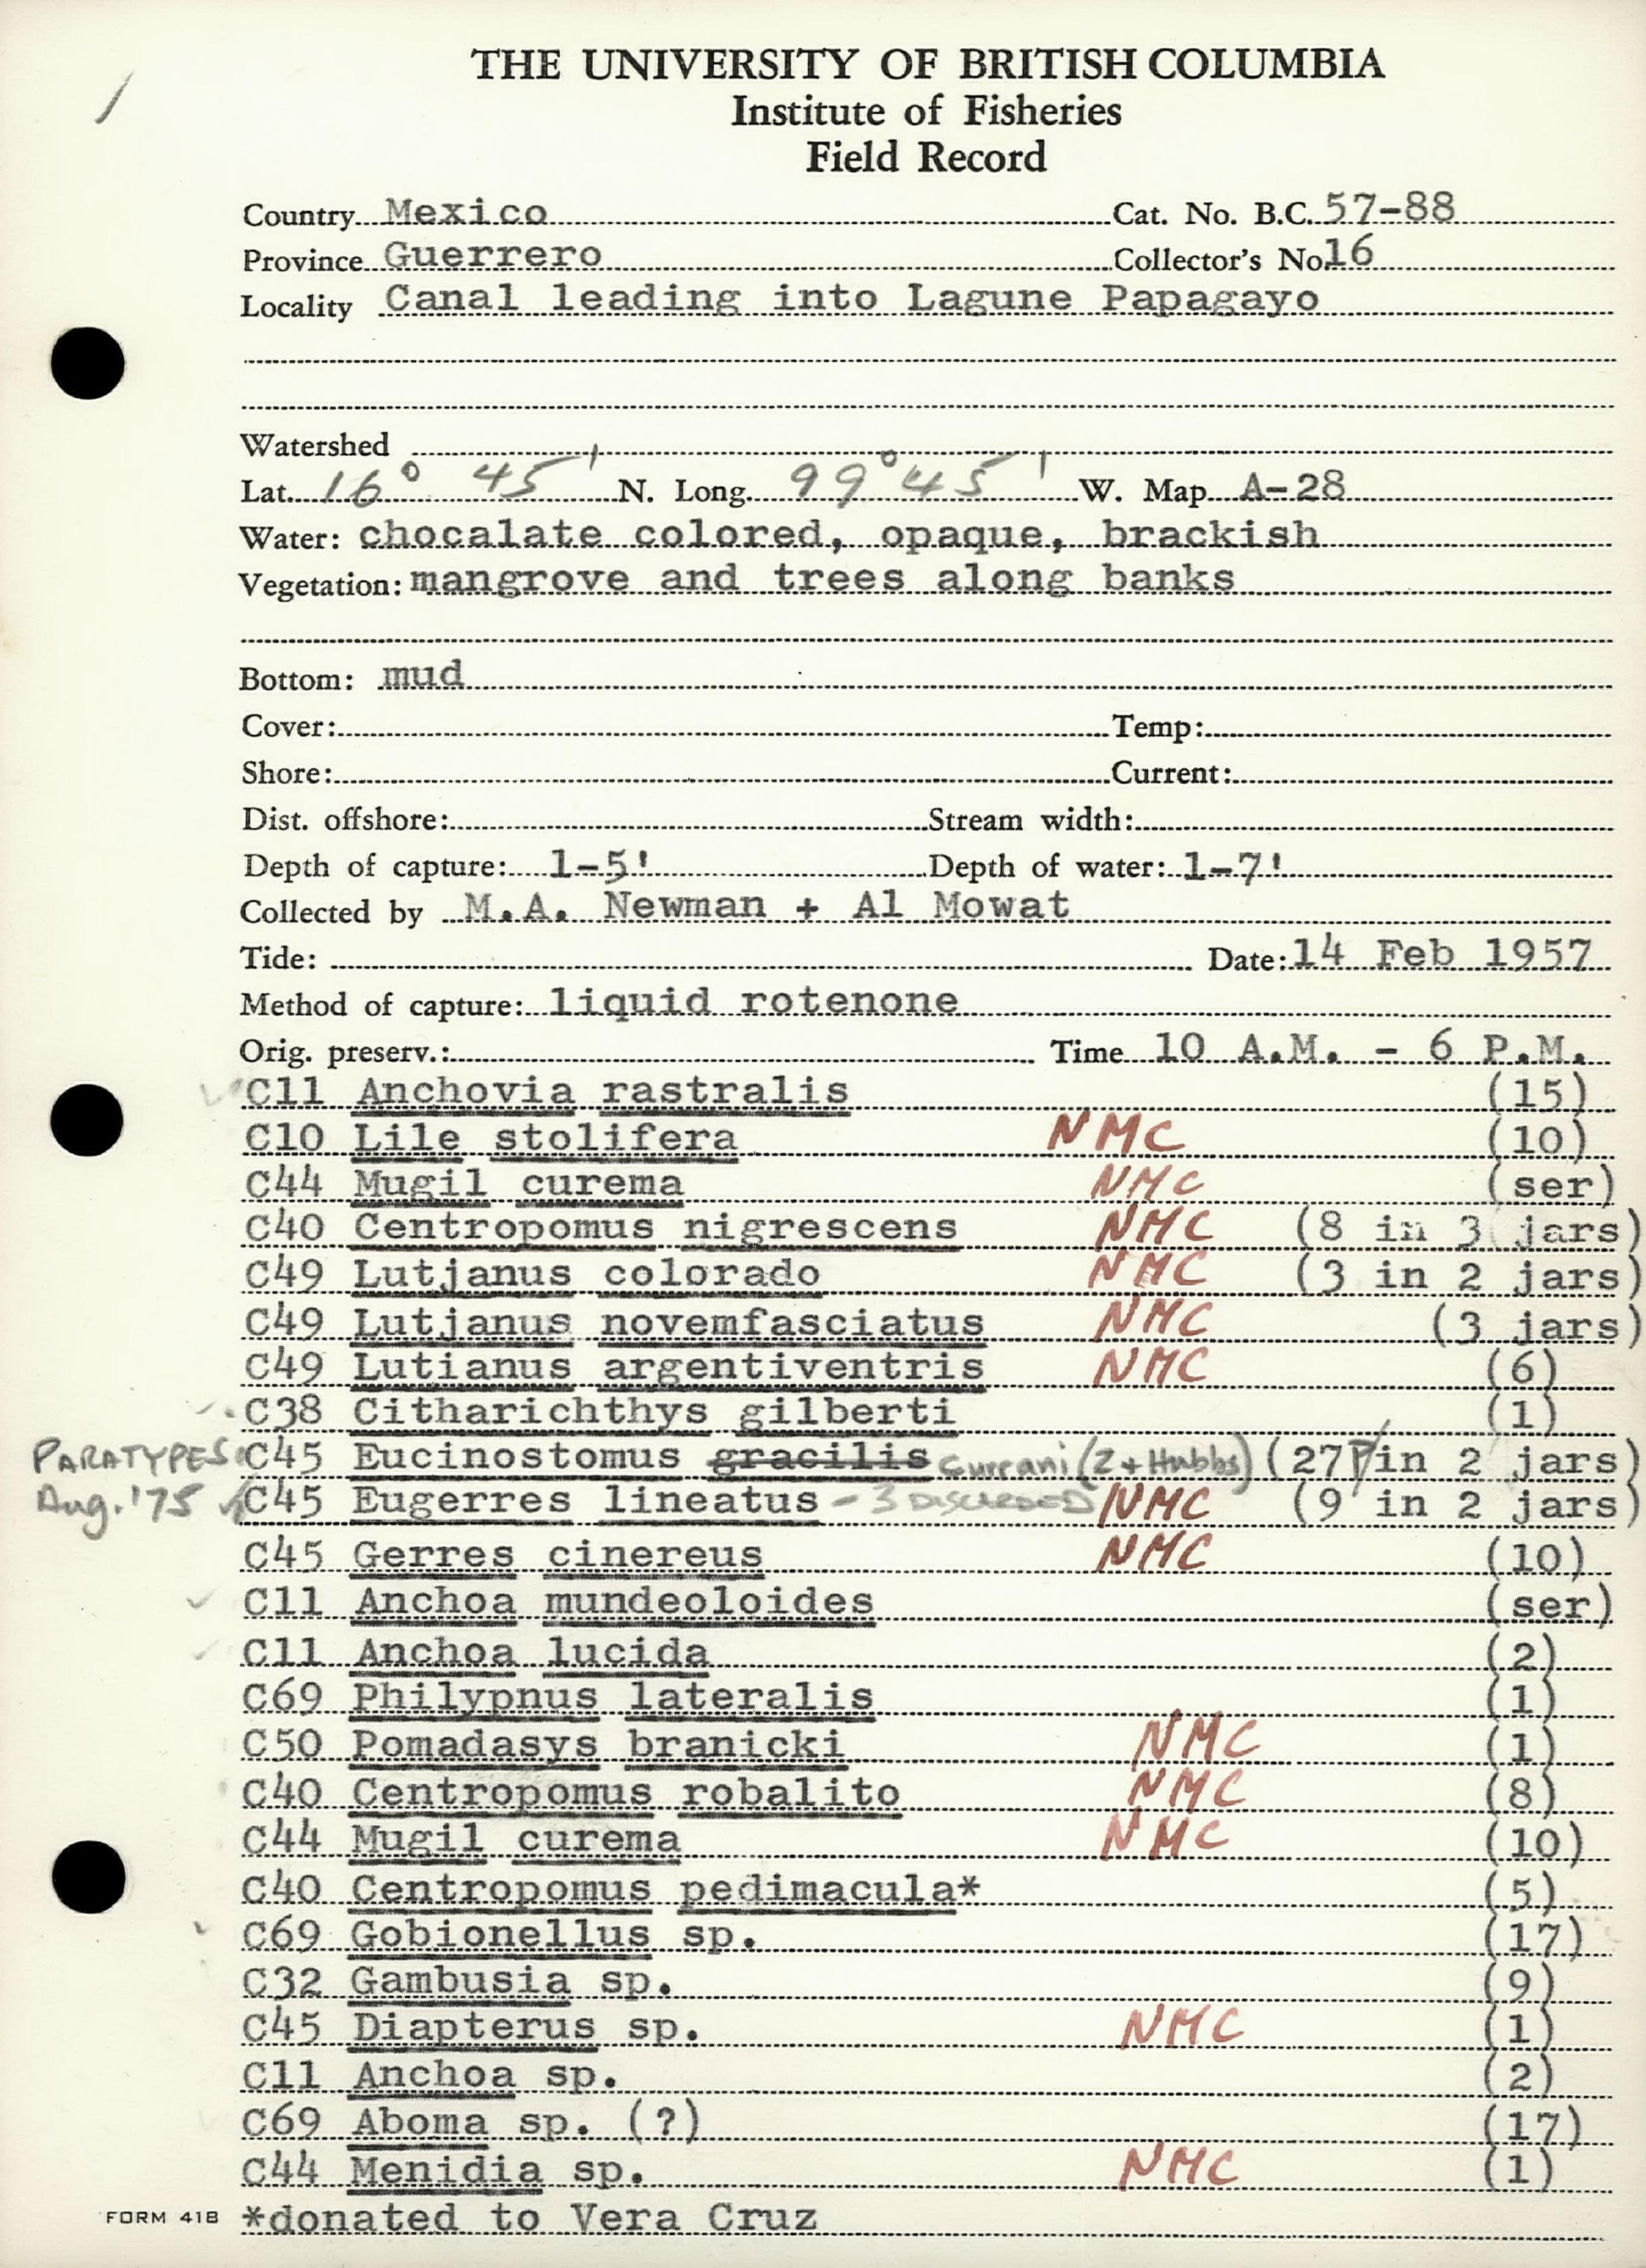 THE UNIVERSITY OF BRITISH COLUMBIA
Institute of Fisheries
Field Record
/
Country Mexico Cat. No. B.C. 57-88
Province Guerrero Collector's No. 16
Locality Canal leading into Lagune Papagayo
Watershed
Lat. 16° 45' N. Long. 99° 45' W. Map A-28
Water: chocalate colored, opaque, brackish
Vegetation: mangrove and trees along banks
Bottom: mud
Cover: Temp:
Shore: Current:
Dist. offshore: Stream width:
Depth of capture: 1-5' Depth of water: 1-7'
Collected by M.A. Newman + Al Mowat
Tide: Date: 14 Feb 1957
Method of capture: liquid rotenone
Orig. preserv.: Time 10 A.M. - 6 P.M.
C11 Anchovia rastralis (15)
C10 Lile stolifera NMC (10)
C44 Mugil curema NMC (ser)
C40 Centropomus nigrescens NMC (8 in 3 jars)
C49 Lutjanus colorado NMC (3 in 2 jars)
C49 Lutjanus novemfasciatus NMC (3 jars)
C49 Lutianus argentiventris NMC (6)
C38 Citharichthys gilberti (1)
PARATYPES C45 Eucinostomus gracilis currani (Z + Hubbs) (27 in 2 jars)
Aug. '75 C45 Eugerres lineatus - 3 DISCARDED NMC (9 in 2 jars)
C45 Gerres cinereus NMC (10)
C11 Anchoa mundeoloides (ser)
C11 Anchoa lucida (2)
C69 Philypnus lateralis (1)
C50 Pomadasys branicki NMC (1)
C40 Centropomus robalito NMC (8)
C44 Mugil curema NMC (10)
C40 Centropomus pedimacula* (5)
C69 Gobionellus sp. (17)
C32 Gambusia sp. (9)
C45 Diapterus sp. NMC (1)
C11 Anchoa sp. (2)
C69 Aboma sp. (?) (17)
C44 Menidia sp. NMC (1)
FORM 41B *donated to Vera Cruz